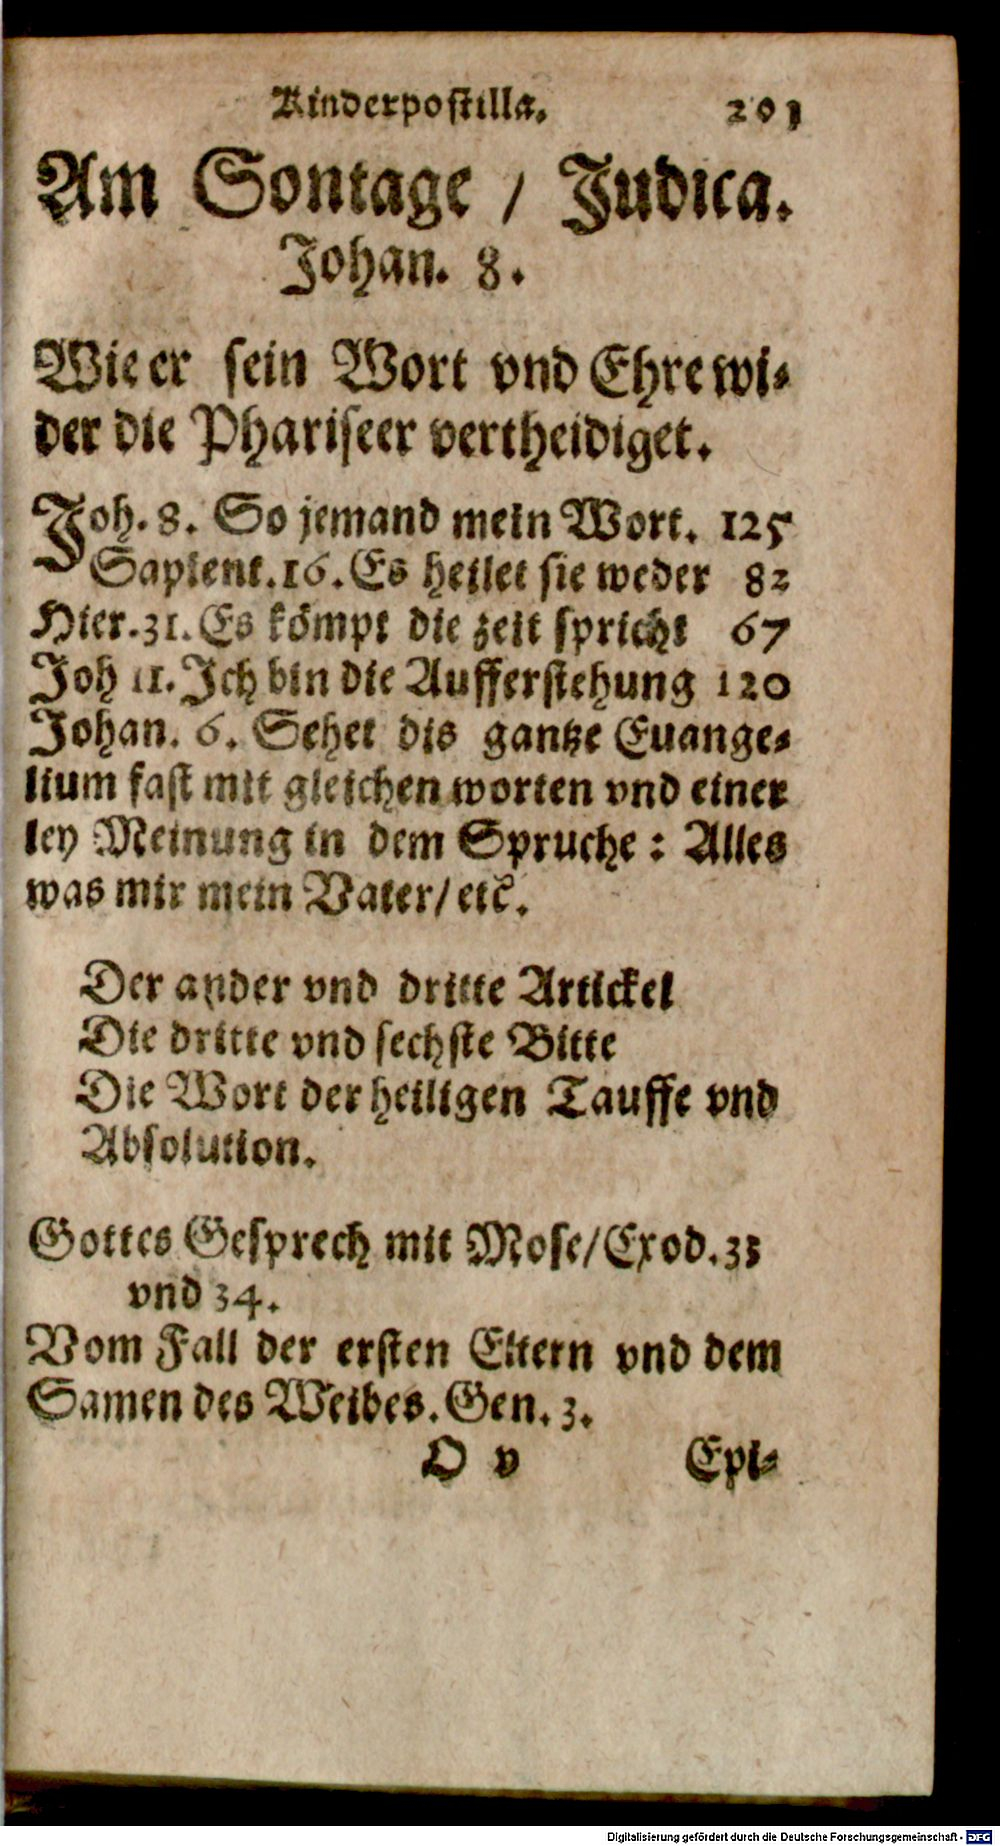 Kinderpostilla. 203
Am Sontage / Judica.
Johan. 8.
Wie er sein Wort vnd Ehre wi-
der die Phariseer vertheidiget.
Joh. 8. So jemand mein Wort. 125
Sapient. 16. Es heilet sie weder 82
Hier. 31. Es kömpt die zeit spricht 67
Joh 11. Ich bin die Aufferstehung 120
Johan. 6. Sehet dis gantze Euange-
lium fast mit gleichen worten vnd einer
ley Meinung in dem Spruche: Alles
was mir mein Vater/ etc.
Der ander vnd dritte Artickel
Die dritte vnd sechste Bitte
Die Wort der heiligen Tauffe vnd
Absolution.
Gottes Gesprech mit Mose/ Exod. 33
vnd 34.
Vom Fall der ersten Eltern vnd dem
Samen des Weibes. Gen. 3.
O v Epi-
Digitalisierung gefördert durch die Deutsche Forschungsgemeinschaft - DFG